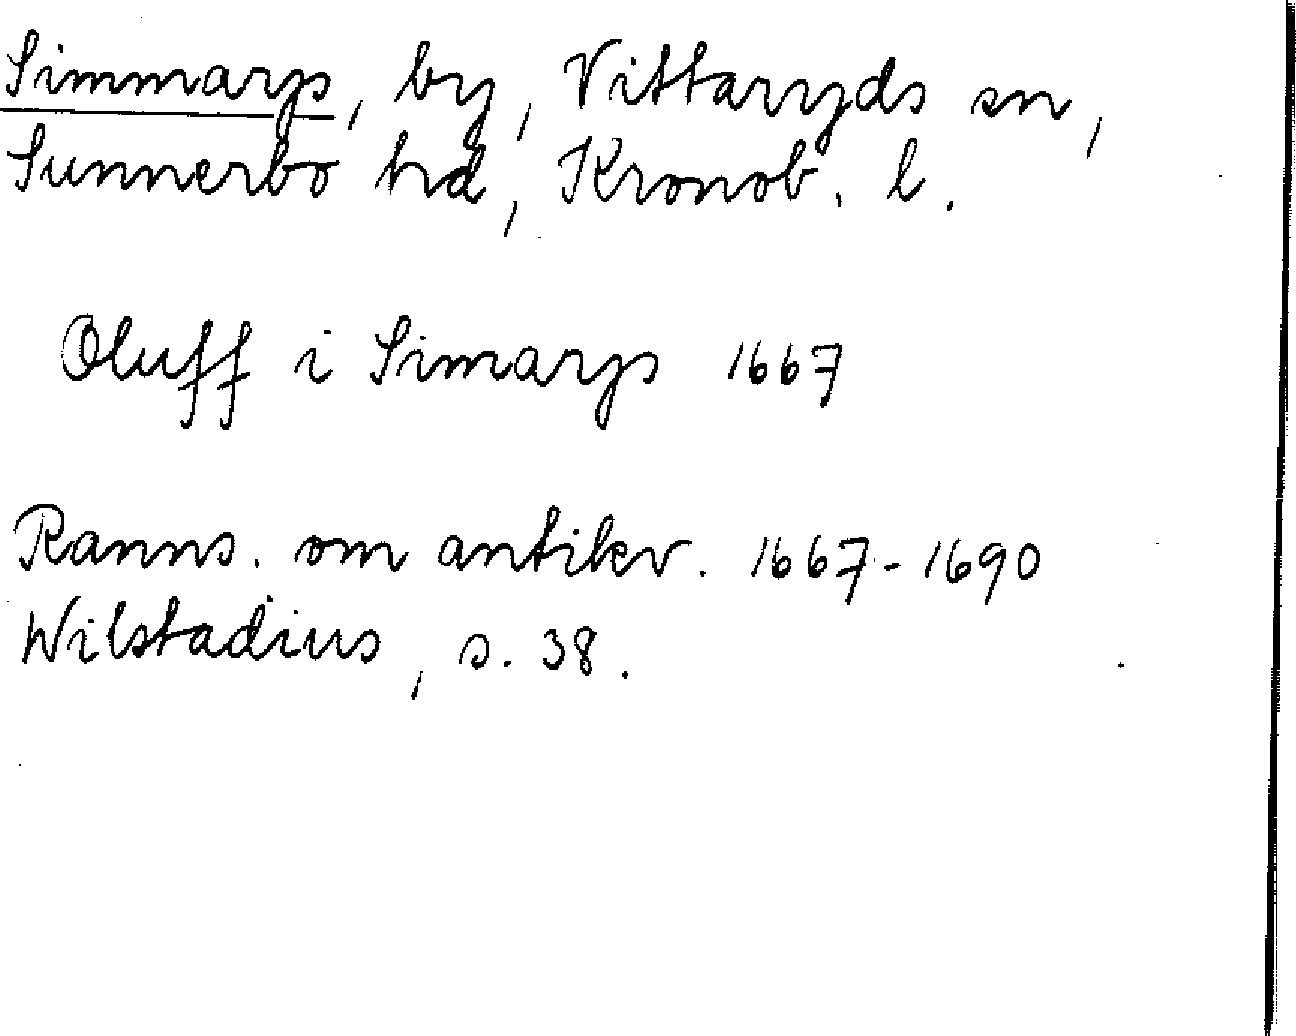 Simmarys, by, Vittaryds sn,
Sunnerbo hd, Kronob. l.
Oluff i Simarys 1667
Ranns. om antikv. 1667-1690
Wilstadius, s. 38.